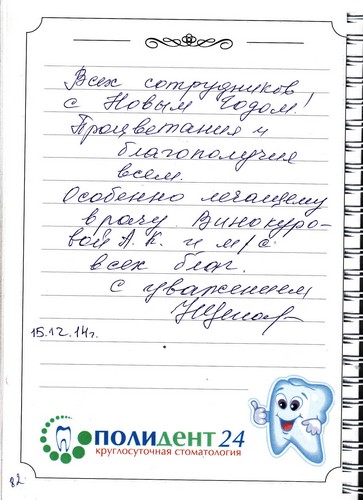 Всех сотрудников
с Новым Годом!
Процветания и
благополучия
всем.
Особенно лечащему
врачу Винокуро-
вой А. К. и м/с
всех благ.
с уважением
15.12.14г.
ПОЛИДЕНТ 24
круглосуточная стоматология
82